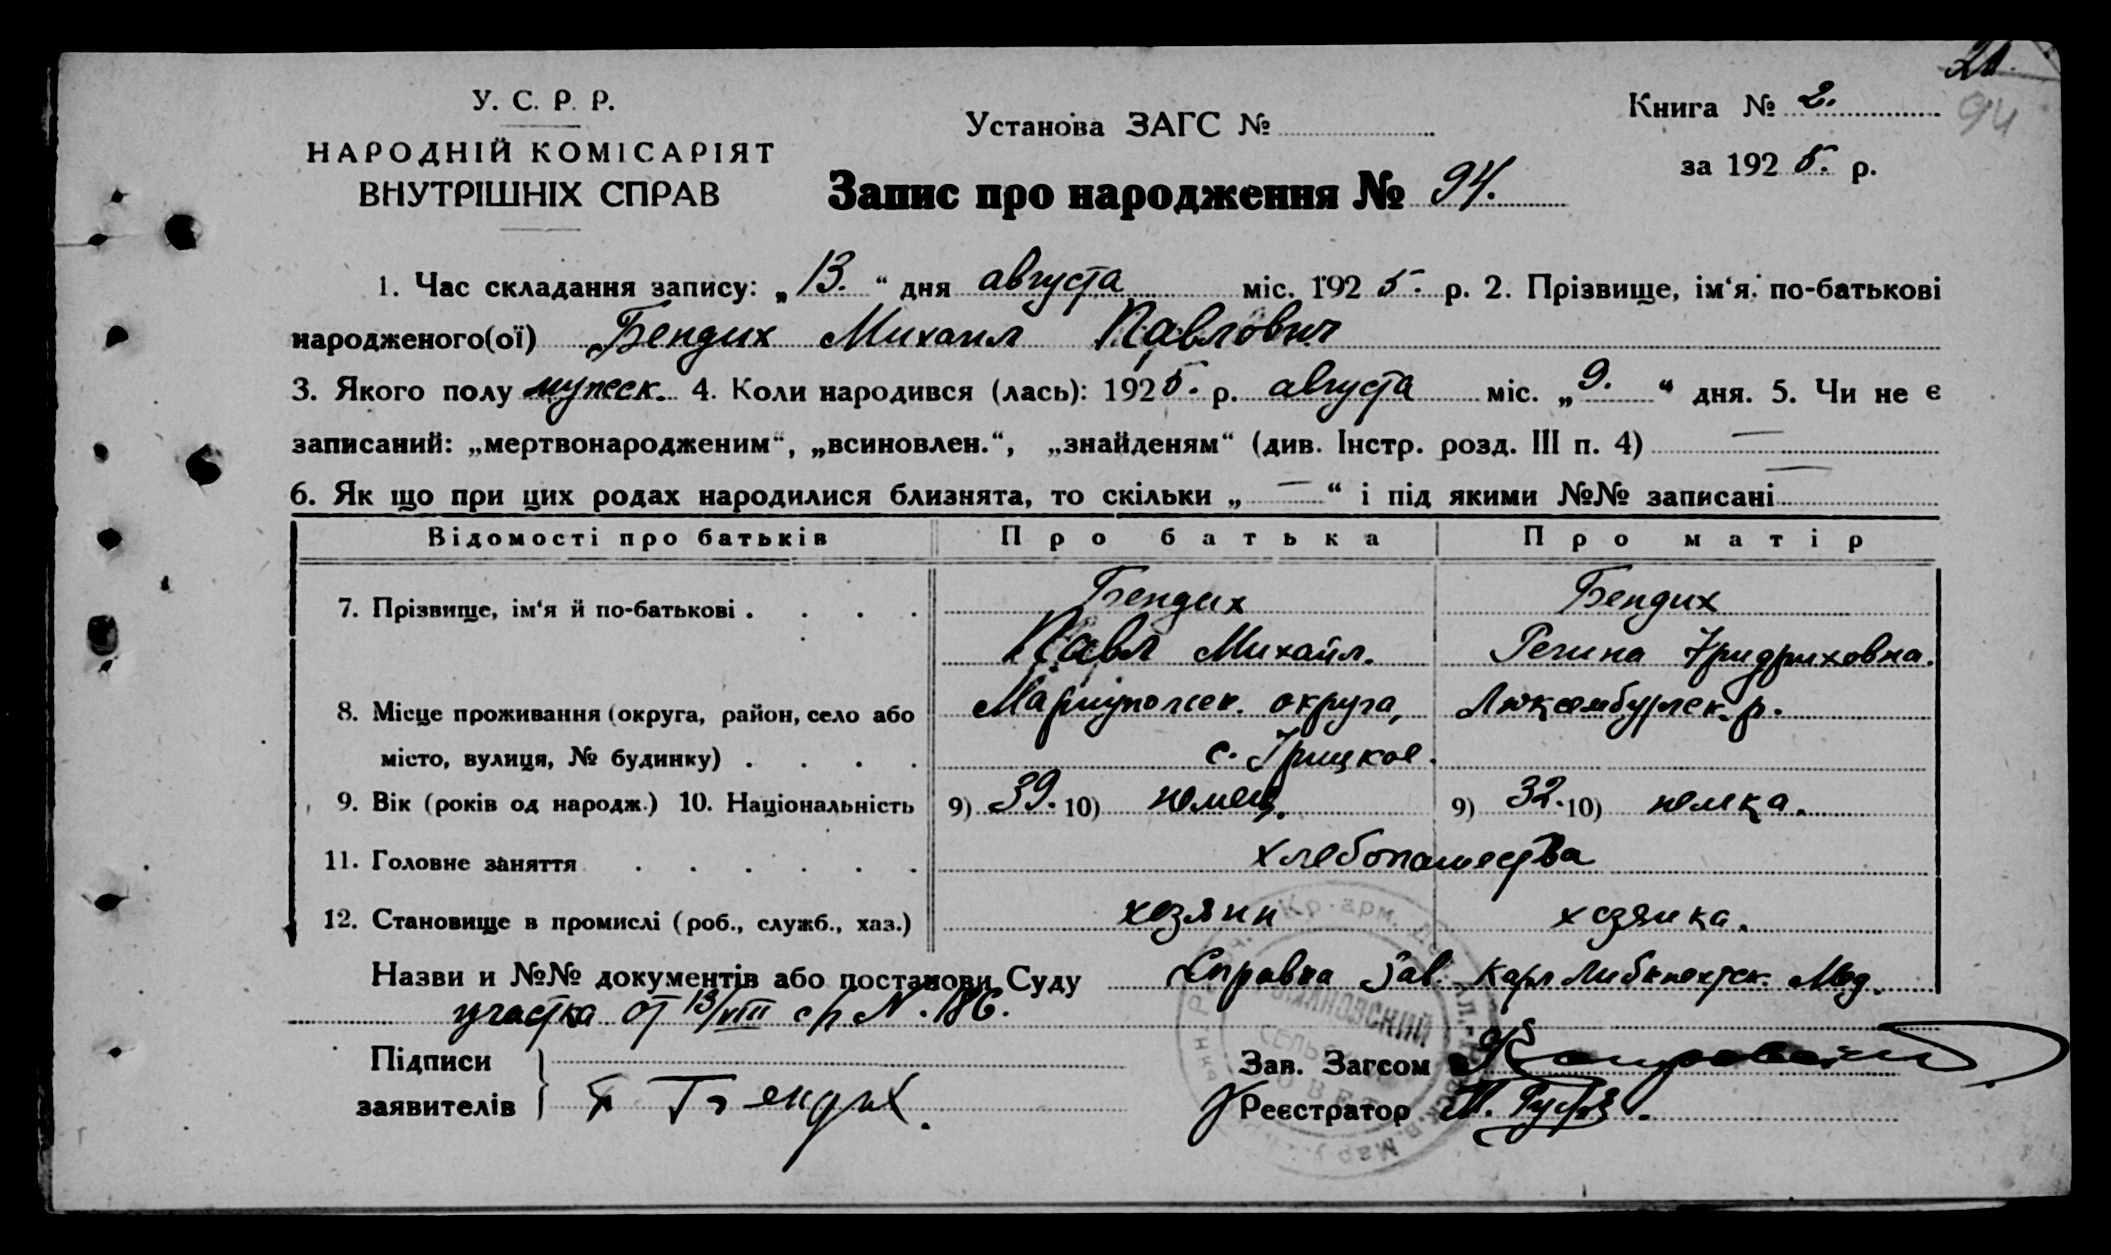 21.
94
У. С. Р. Р.
НАРОДНІЙ КОМІСАРІЯТ
ВНУТРІШНІХ СПРАВ
Установа ЗАГС №
Книга № 2.
за 1925. р.
Запис про народження № 94.
1. Час складання запису: „13.“ дня августа міс. 1925. р. 2. Прізвище, ім‘я, по-батькові
народженого(ої) Бендих Михаил Павлович
3. Якого полу мужеск. 4. Коли народився (лась): 1925. р. августа міс. „9.“ дня. 5. Чи не є
записаний: „мертвонародженим“, „всиновлен.“, „знайденям“ (див. Інстр. розд. III п. 4) —
6. Як що при цих родах народилися близнята, то скільки „—“ і під якими №№ записані —
Відомості про батьків Про батька Про матір
7. Прізвище, ім‘я й по-батькові . . . . Бендих Бендих
Павл Михайл. Регина Фридриховна.
8. Місце проживання (округа, район, село або Мариупольск. округа, Люксембургск. р.
місто, вулиця, № будинку) . . . . с.
9. Вік (років од народж.) 10. Національність 9) 39. 10) немец. 9) 32. 10) немка.
11. Головне заняття . . . . . хлебопашества
12. Становище в промислі (роб., служб., хаз.) хозяин хозяика.
Назви и №№ документів або постанови Суду Справка Зав. Карл Либкнехтск. Мед.
участка от 13/VIII с/г N. 186.
Підписи
заявителів } Бендих.
Зав. Загсом
Реєстратор
СЕЛЬ